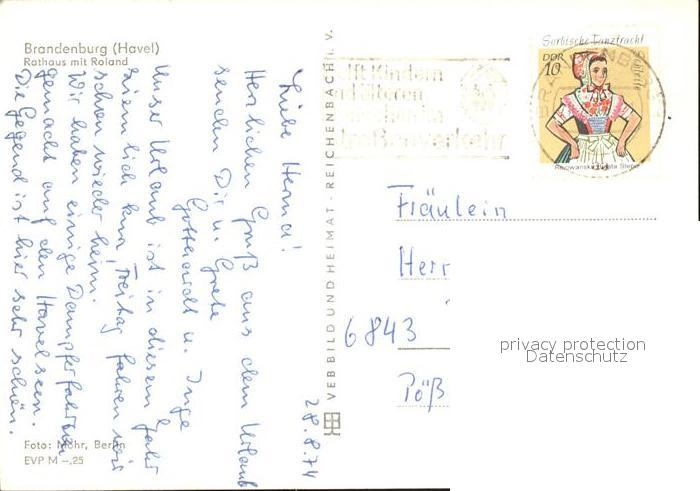 Brandenburg (Havel)
Rathaus mit Roland
28.8.74
Liebe Herma!
Herzlichen Gruß aus dem Urlaub
senden Dir u. Grete
Gotthardt u. Inge
Unser Urlaub ist in diesem Jahr
ziemlich kurz, Freitag fahren wir
schon wieder heim.
Wir haben einige Dampferfahrten
gemacht auf den Havelseen.
Die Gegend ist hier sehr schön.
Foto: Mohr, Berlin
EVP M –,25
VEB BILD UND HEIMAT · REICHENBACH i. V.
Helft Kindern
und älteren
Menschen im
Straßenverkehr
Sorbische Tanztracht
DDR
10
Fräulein
Herr
6843
Pöß
privacy protection
Datenschutz